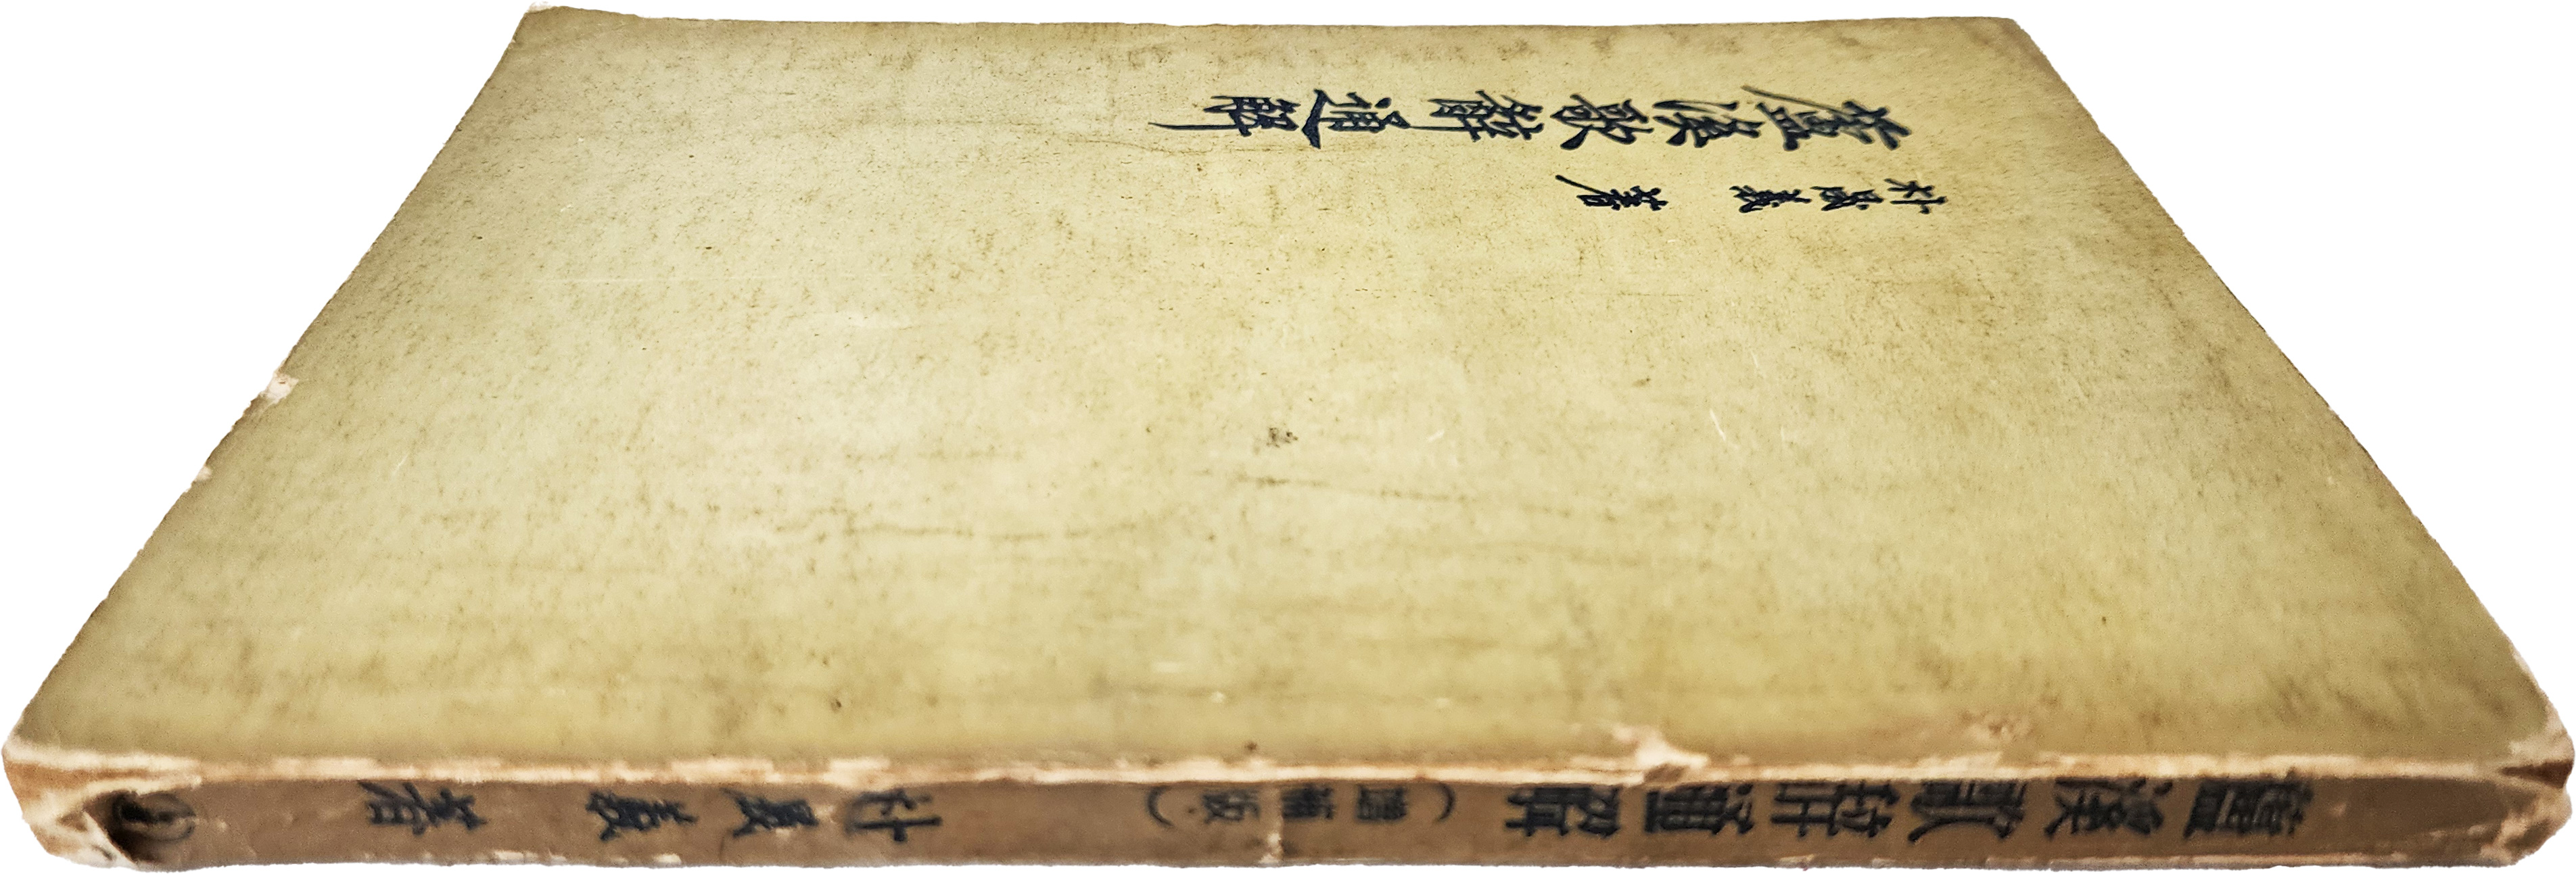 蘆溪歌辭通解
朴晟義 著
蘆溪歌辭通解 (增補版) 朴晟義 著